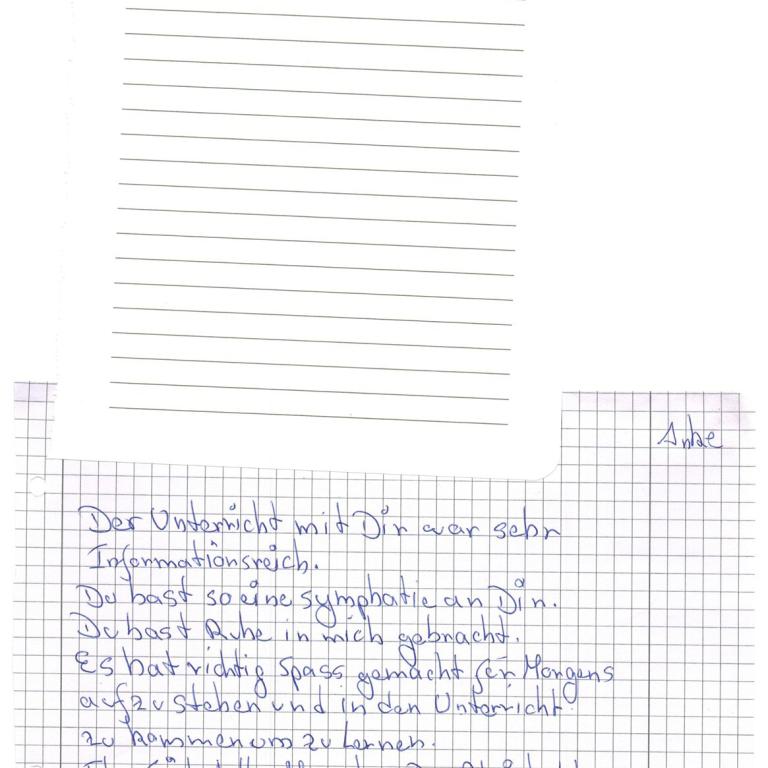 Anke
Der Unterricht mit Dir war sehr
Informationsreich.
Du hast so eine symphatie an Dir.
Du hast Ruhe in mich gebracht.
Es hat richtig Spass gemacht für Morgens
aufzustehen und in den Unterricht
zu kommen um zu Lernen.